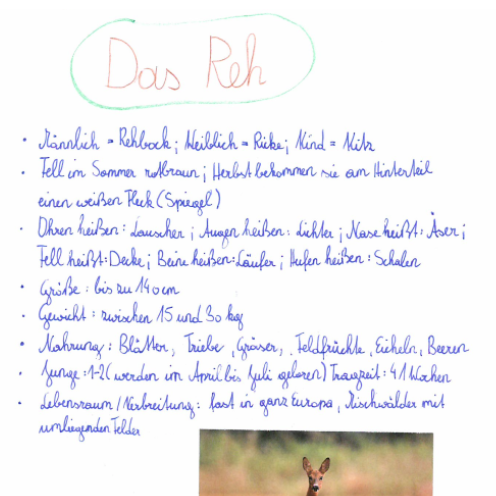 Das Reh
• Männlich = Rehbock; Weiblich = Ricke; Kind = Kitz
• Fell im Sommer rotbraun; Herbst bekommen sie am Hinterteil
einen weißen Fleck (Spiegel)
• Ohren heißen: Lauscher; Augen heißen: Lichter; Nase heißt: Äser;
Fell heißt: Decke; Beine heißen: Läufer; Hufen heißen: Schalen
• Größe: bis zu 140cm
• Gewicht: zwischen 15 und 30 kg
• Nahrung: Blätter, Triebe, Gräser, Feldfrüchte, Eicheln, Beeren
• Junge: 1-2 (werden im April bis Juli geboren) Tragzeit: 41 Wochen
• Lebensraum/Verbreitung: fast in ganz Europa, Mischwälder mit
umliegenden Felder